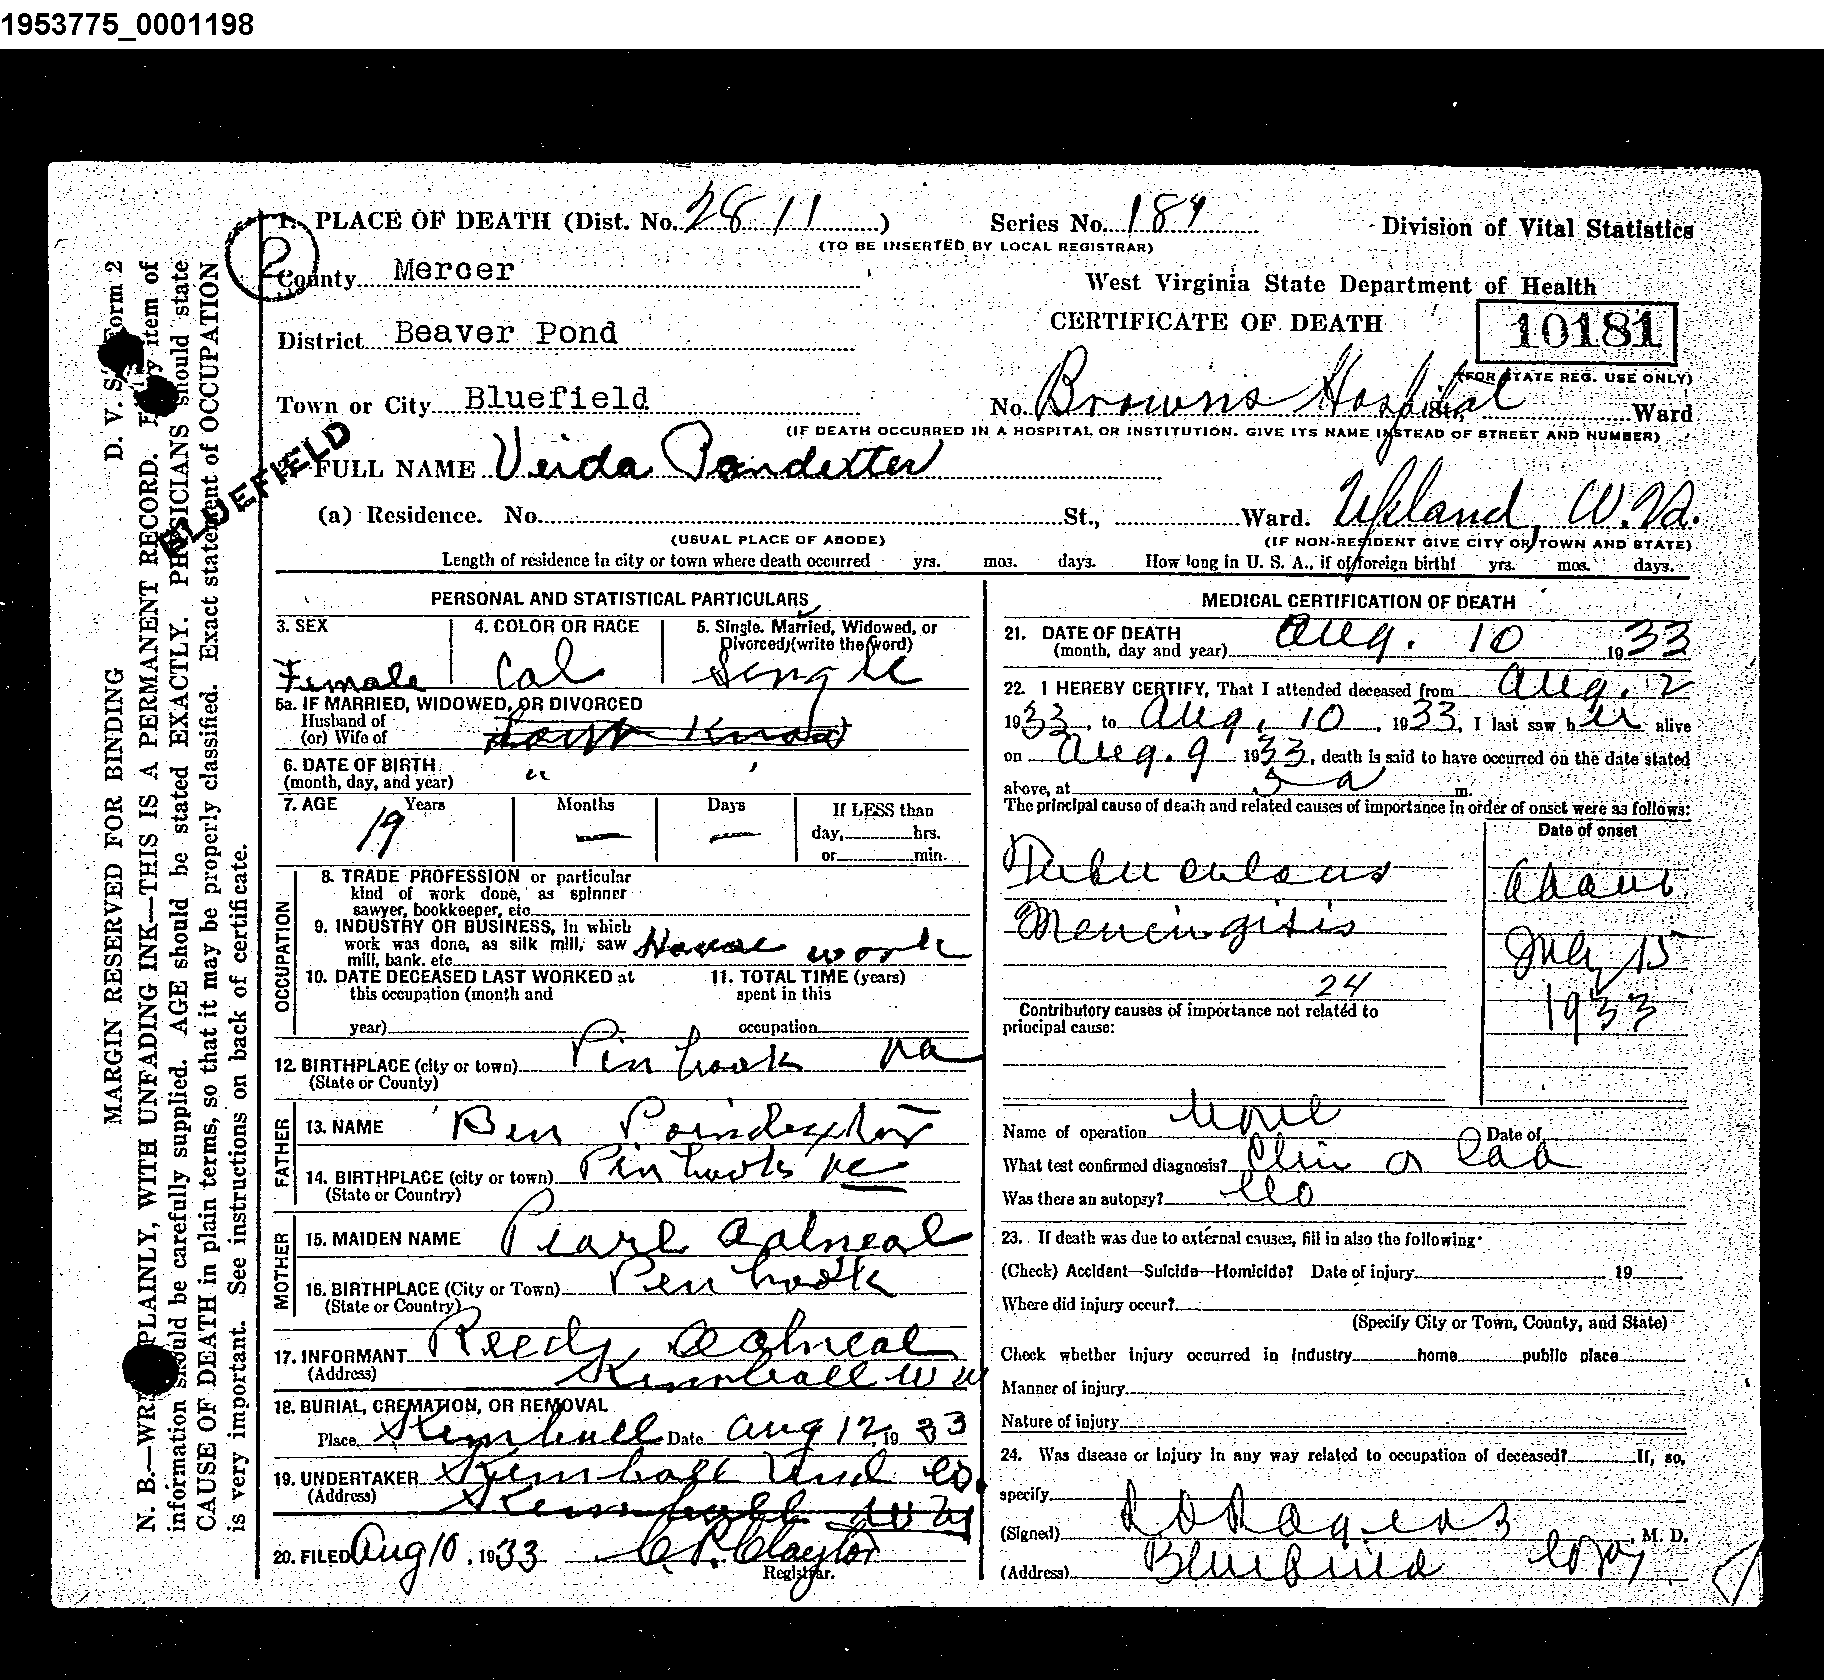 1953775_0001198
1. PLACE OF DEATH (Dist. No. 2811)
Series No. 189
Division of Vital Statistics
(TO BE INSERTED BY LOCAL REGISTRAR)
2
County Mercer
West Virginia State Department of Health
CERTIFICATE OF DEATH
10181
(FOR STATE REG. USE ONLY)
District Beaver Pond
Town or City Bluefield
No. Browns Hospital St., Ward
(IF DEATH OCCURRED IN A HOSPITAL OR INSTITUTION. GIVE ITS NAME INSTEAD OF STREET AND NUMBER)
BLUEFIELD
FULL NAME Veida
(a) Residence. No. St., Ward. Upland, W.Va.
(USUAL PLACE OF ABODE)
(IF NON-RESIDENT GIVE CITY OR TOWN AND STATE)
Length of residence in city or town where death occurred yrs. mos. days. How long in U. S. A., if of foreign birth? yrs. mos. days.
PERSONAL AND STATISTICAL PARTICULARS
3. SEX
Female
4. COLOR OR RACE
Col
5. Single. Married, Widowed, or
Divorced (write the word)
Single
5a. IF MARRIED, WIDOWED, OR DIVORCED
Husband of
(or) Wife of
6. DATE OF BIRTH
(month, day, and year) "
7. AGE Years Months Days If LESS than
19 — — day, hrs.
or min.
OCCUPATION
8. TRADE PROFESSION or particular
kind of work done, as spinner
sawyer, bookkeeper, etc.
9. INDUSTRY OR BUSINESS, in which
work was done, as silk mill, saw
mill, bank. etc. House work
10. DATE DECEASED LAST WORKED at
this occupation (month and
year)
11. TOTAL TIME (years)
spent in this
occupation
12. BIRTHPLACE (city or town) Pin hook Va
(State or County)
FATHER
13. NAME Ben Poindexter
14. BIRTHPLACE (city or town) Pin hook
(State or Country)
MOTHER
15. MAIDEN NAME Pearl
16. BIRTHPLACE (City or Town) Pen hook
(State or Country)
17. INFORMANT
(Address) Kimball
18. BURIAL, CREMATION, OR REMOVAL
Place Kimball Date Aug 12, 1933
19. UNDERTAKER Kimball Und Co.
(Address) Kimball
20. FILED Aug 10, 1933 C. P. Claytor
Registrar.
MEDICAL CERTIFICATION OF DEATH
21. DATE OF DEATH
(month, day and year) Aug. 10 1933
22. I HEREBY CERTIFY, That I attended deceased from Aug. 2
1933, to Aug. 10, 1933, I last saw her alive
on Aug. 9 1933, death is said to have occurred on the date stated
above, at 5 a m.
The principal cause of death and related causes of importance in order of onset were as follows:
Date of onset
Tuberculous
Meningitis
24
About
July 15
1933
Contributory causes of importance not related to
principal cause:
Name of operation None Date of
What test confirmed diagnosis? Clin
Was there an autopsy? No
23. If death was due to external causes, fill in also the following:
(Check) Accident—Suicide—Homicide? Date of injury 19
Where did injury occur?
(Specify City or Town, County, and State)
Check whether injury occurred in industry home public place
Manner of injury
Nature of injury
24. Was disease or injury in any way related to occupation of deceased? If, so,
specify
(Signed) M. D.
(Address) Bluefield
D. V. S. Form 2
MARGIN RESERVED FOR BINDING
N. B.—WRITE PLAINLY, WITH UNFADING INK—THIS IS A PERMANENT RECORD. Every item of
information should be carefully supplied. AGE should be stated EXACTLY. PHYSICIANS should state
CAUSE OF DEATH in plain terms, so that it may be properly classified. Exact statement of OCCUPATION
is very important. See instructions on back of certificate.